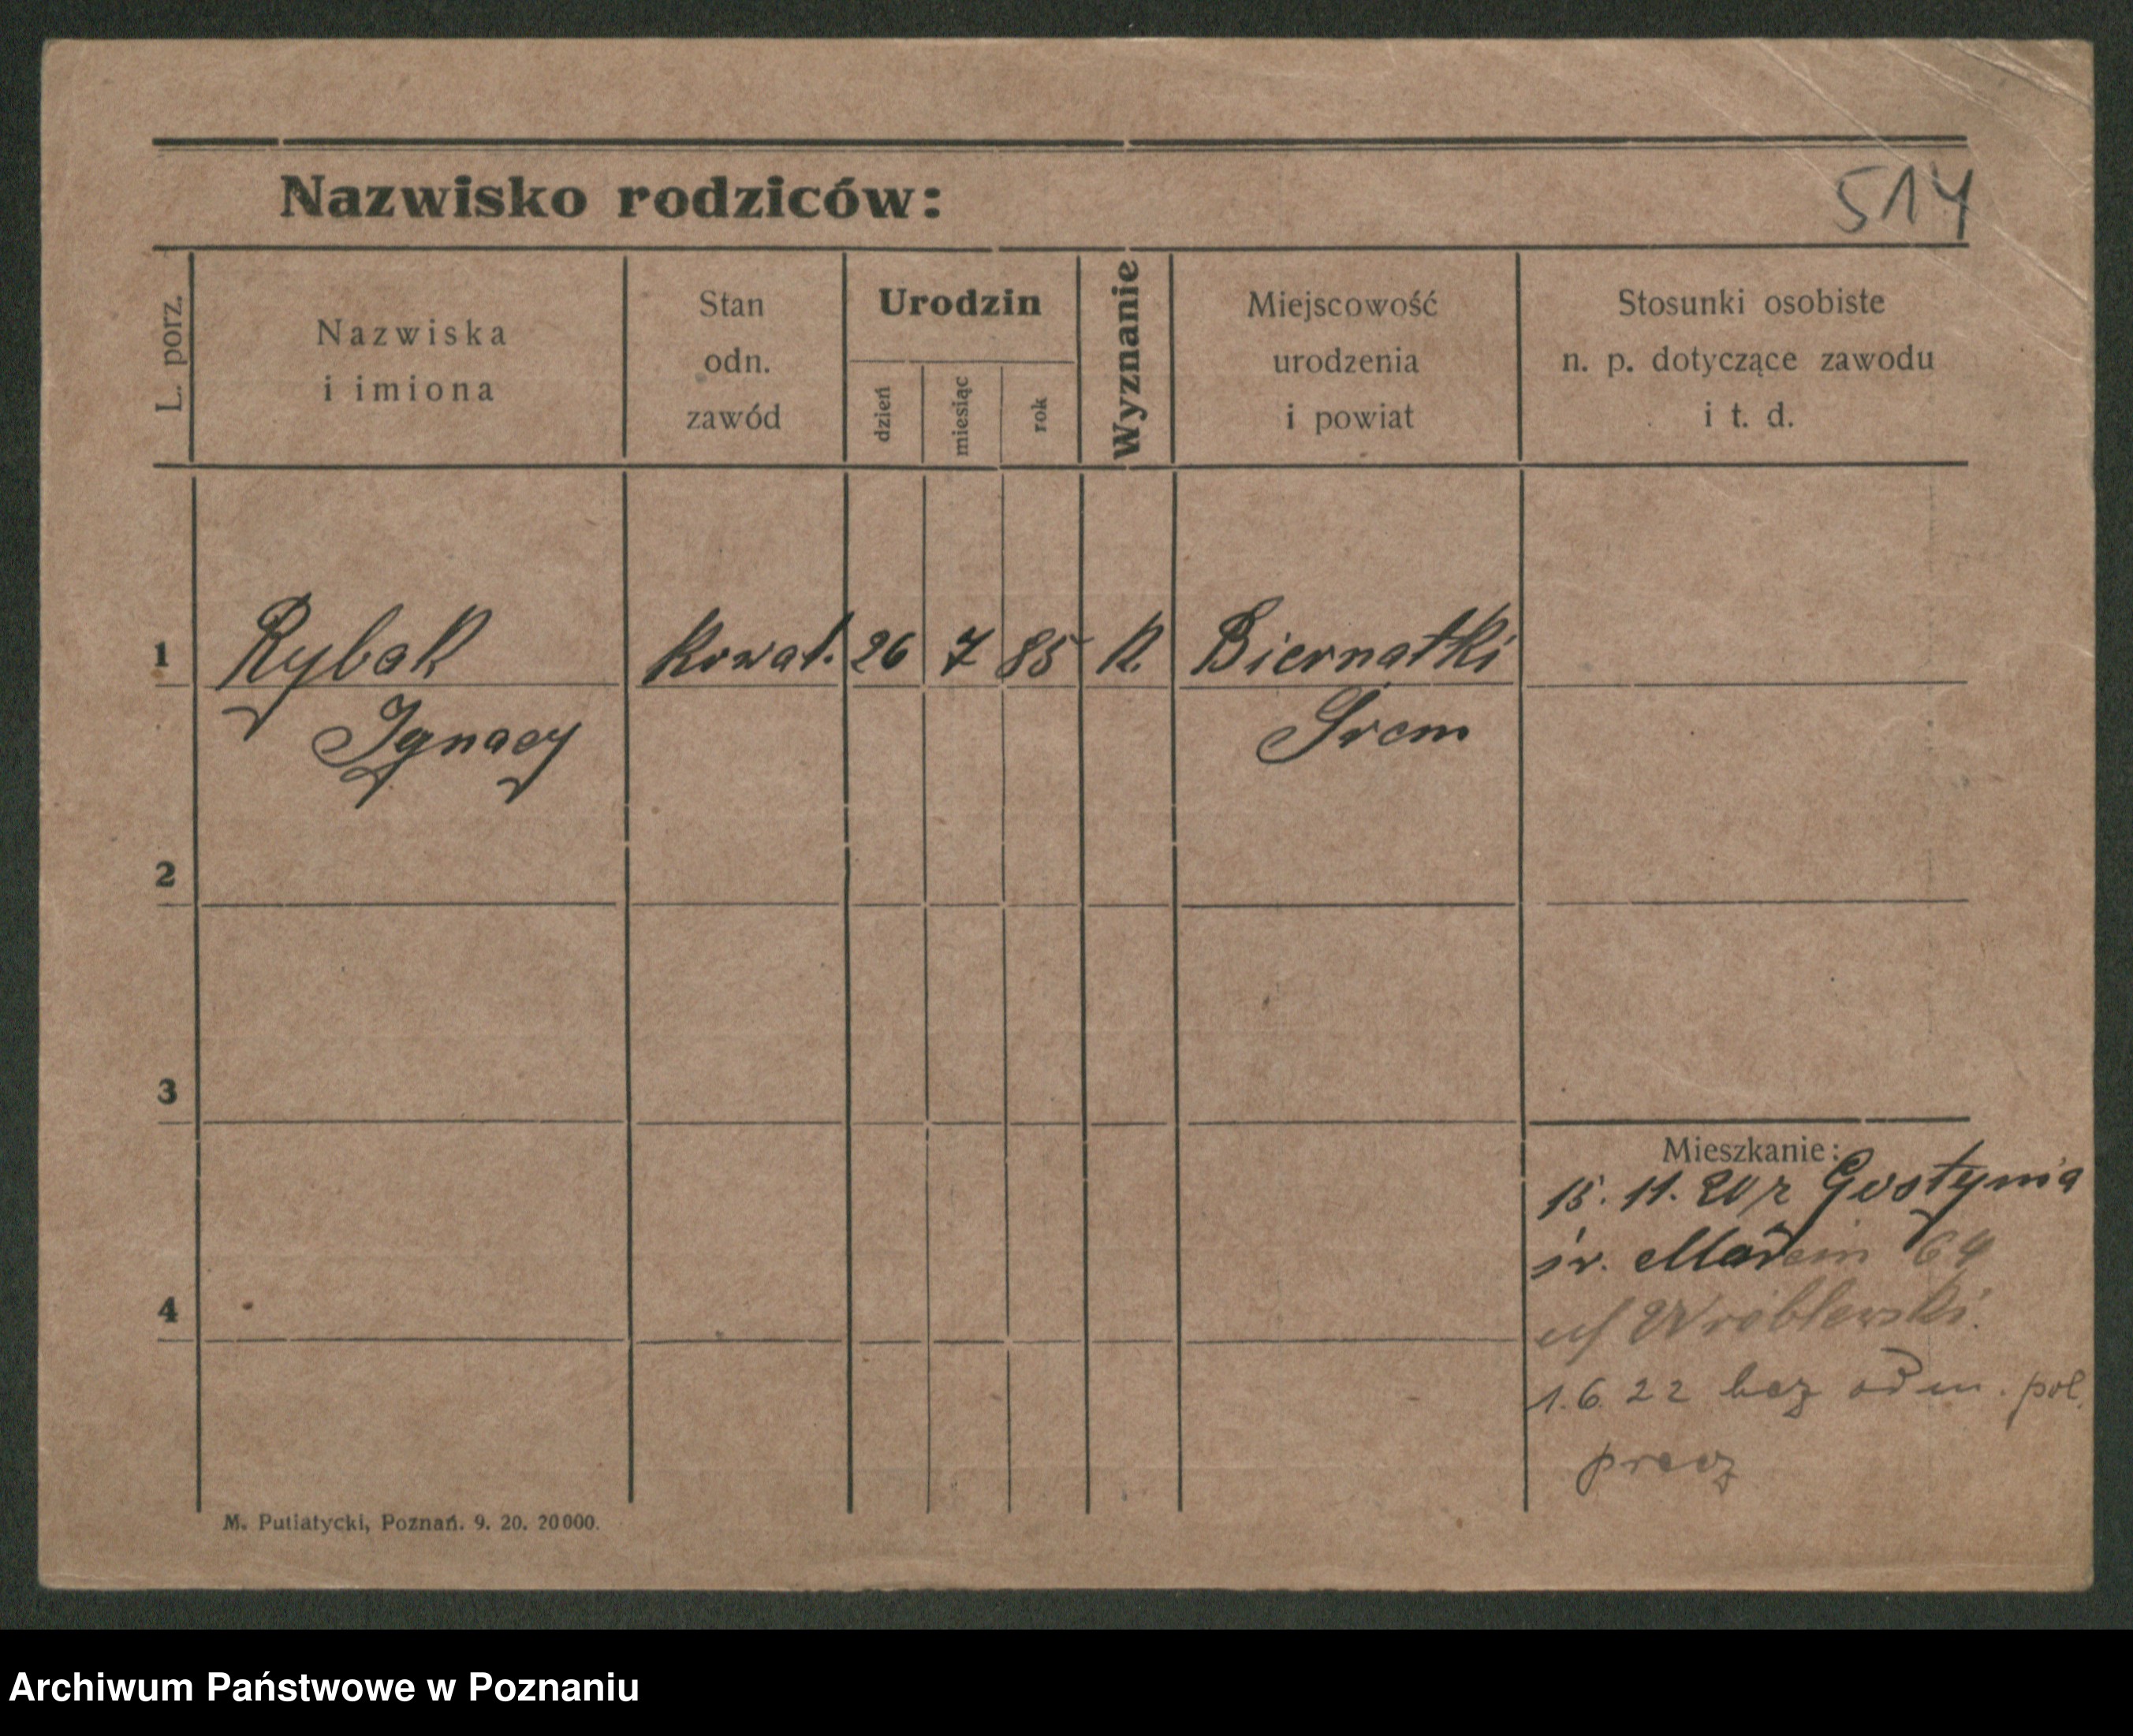 Nazwisko rodziców:
514
L. porz.
Nazwiska
i imiona
Stan
odn.
zawód
Urodzin
dzień
miesiąc
rok
Wyznanie
Miejscowość
urodzenia
i powiat
Stosunki osobiste
n. p. dotyczące zawodu
i t. d.
1 Rybak Kowal. 26 7 85 K. Biernatki
Ignacy Śrem
2
3
4
Mieszkanie:
15. 11. 20 z Gostynia
św. Marcin 64
Wróblewski.
1. 6. 22 bez odm. pol.
precz
M. Putiatycki, Poznań. 9. 20. 20000.
Archiwum Państwowe w Poznaniu